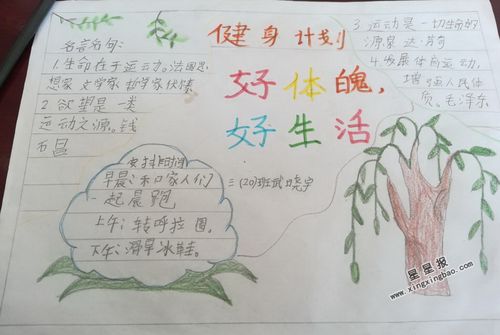 健身计划
好体魄,
好生活
名言名句:
1.生命在于运动。法国思
想家 文学家 哲学家 伏尔泰
2 欲望是一类
运动之源。钱
石昌
3.运动是一切生命的
源泉 达·芬奇
4.发展体育运动,
增强人民体
质。毛泽东
安排时间
早晨:和家人们
一起晨跑
上午:转呼拉圈,
下午:滑旱冰鞋。
三(20)班武晓宇
星星报
www.xingxingbao.com